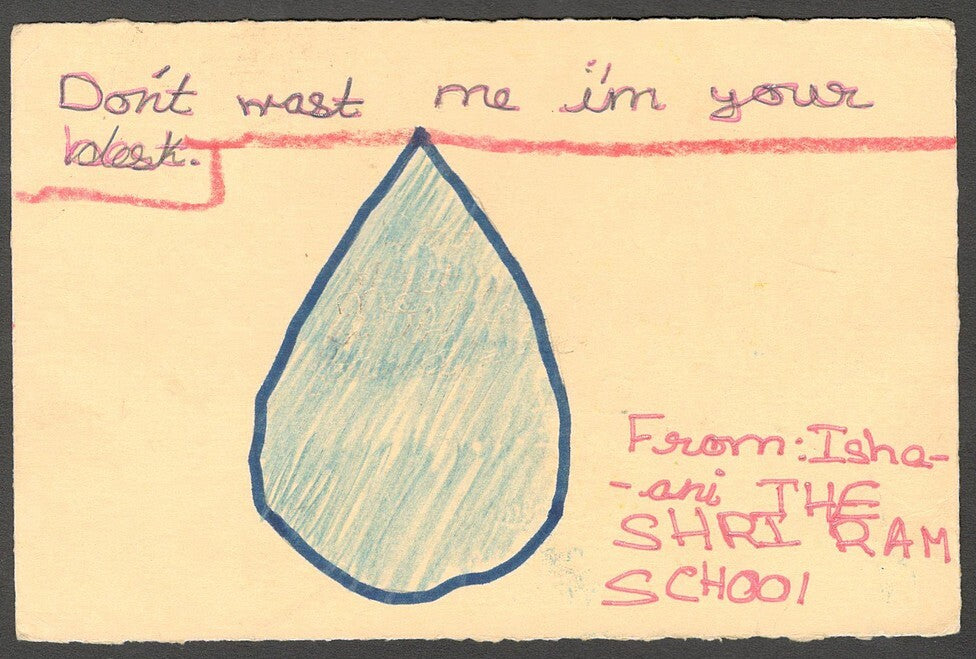 Don't wast me i'm your
From:Isha-
-ani THE
SHRI RAM
SCHOOl